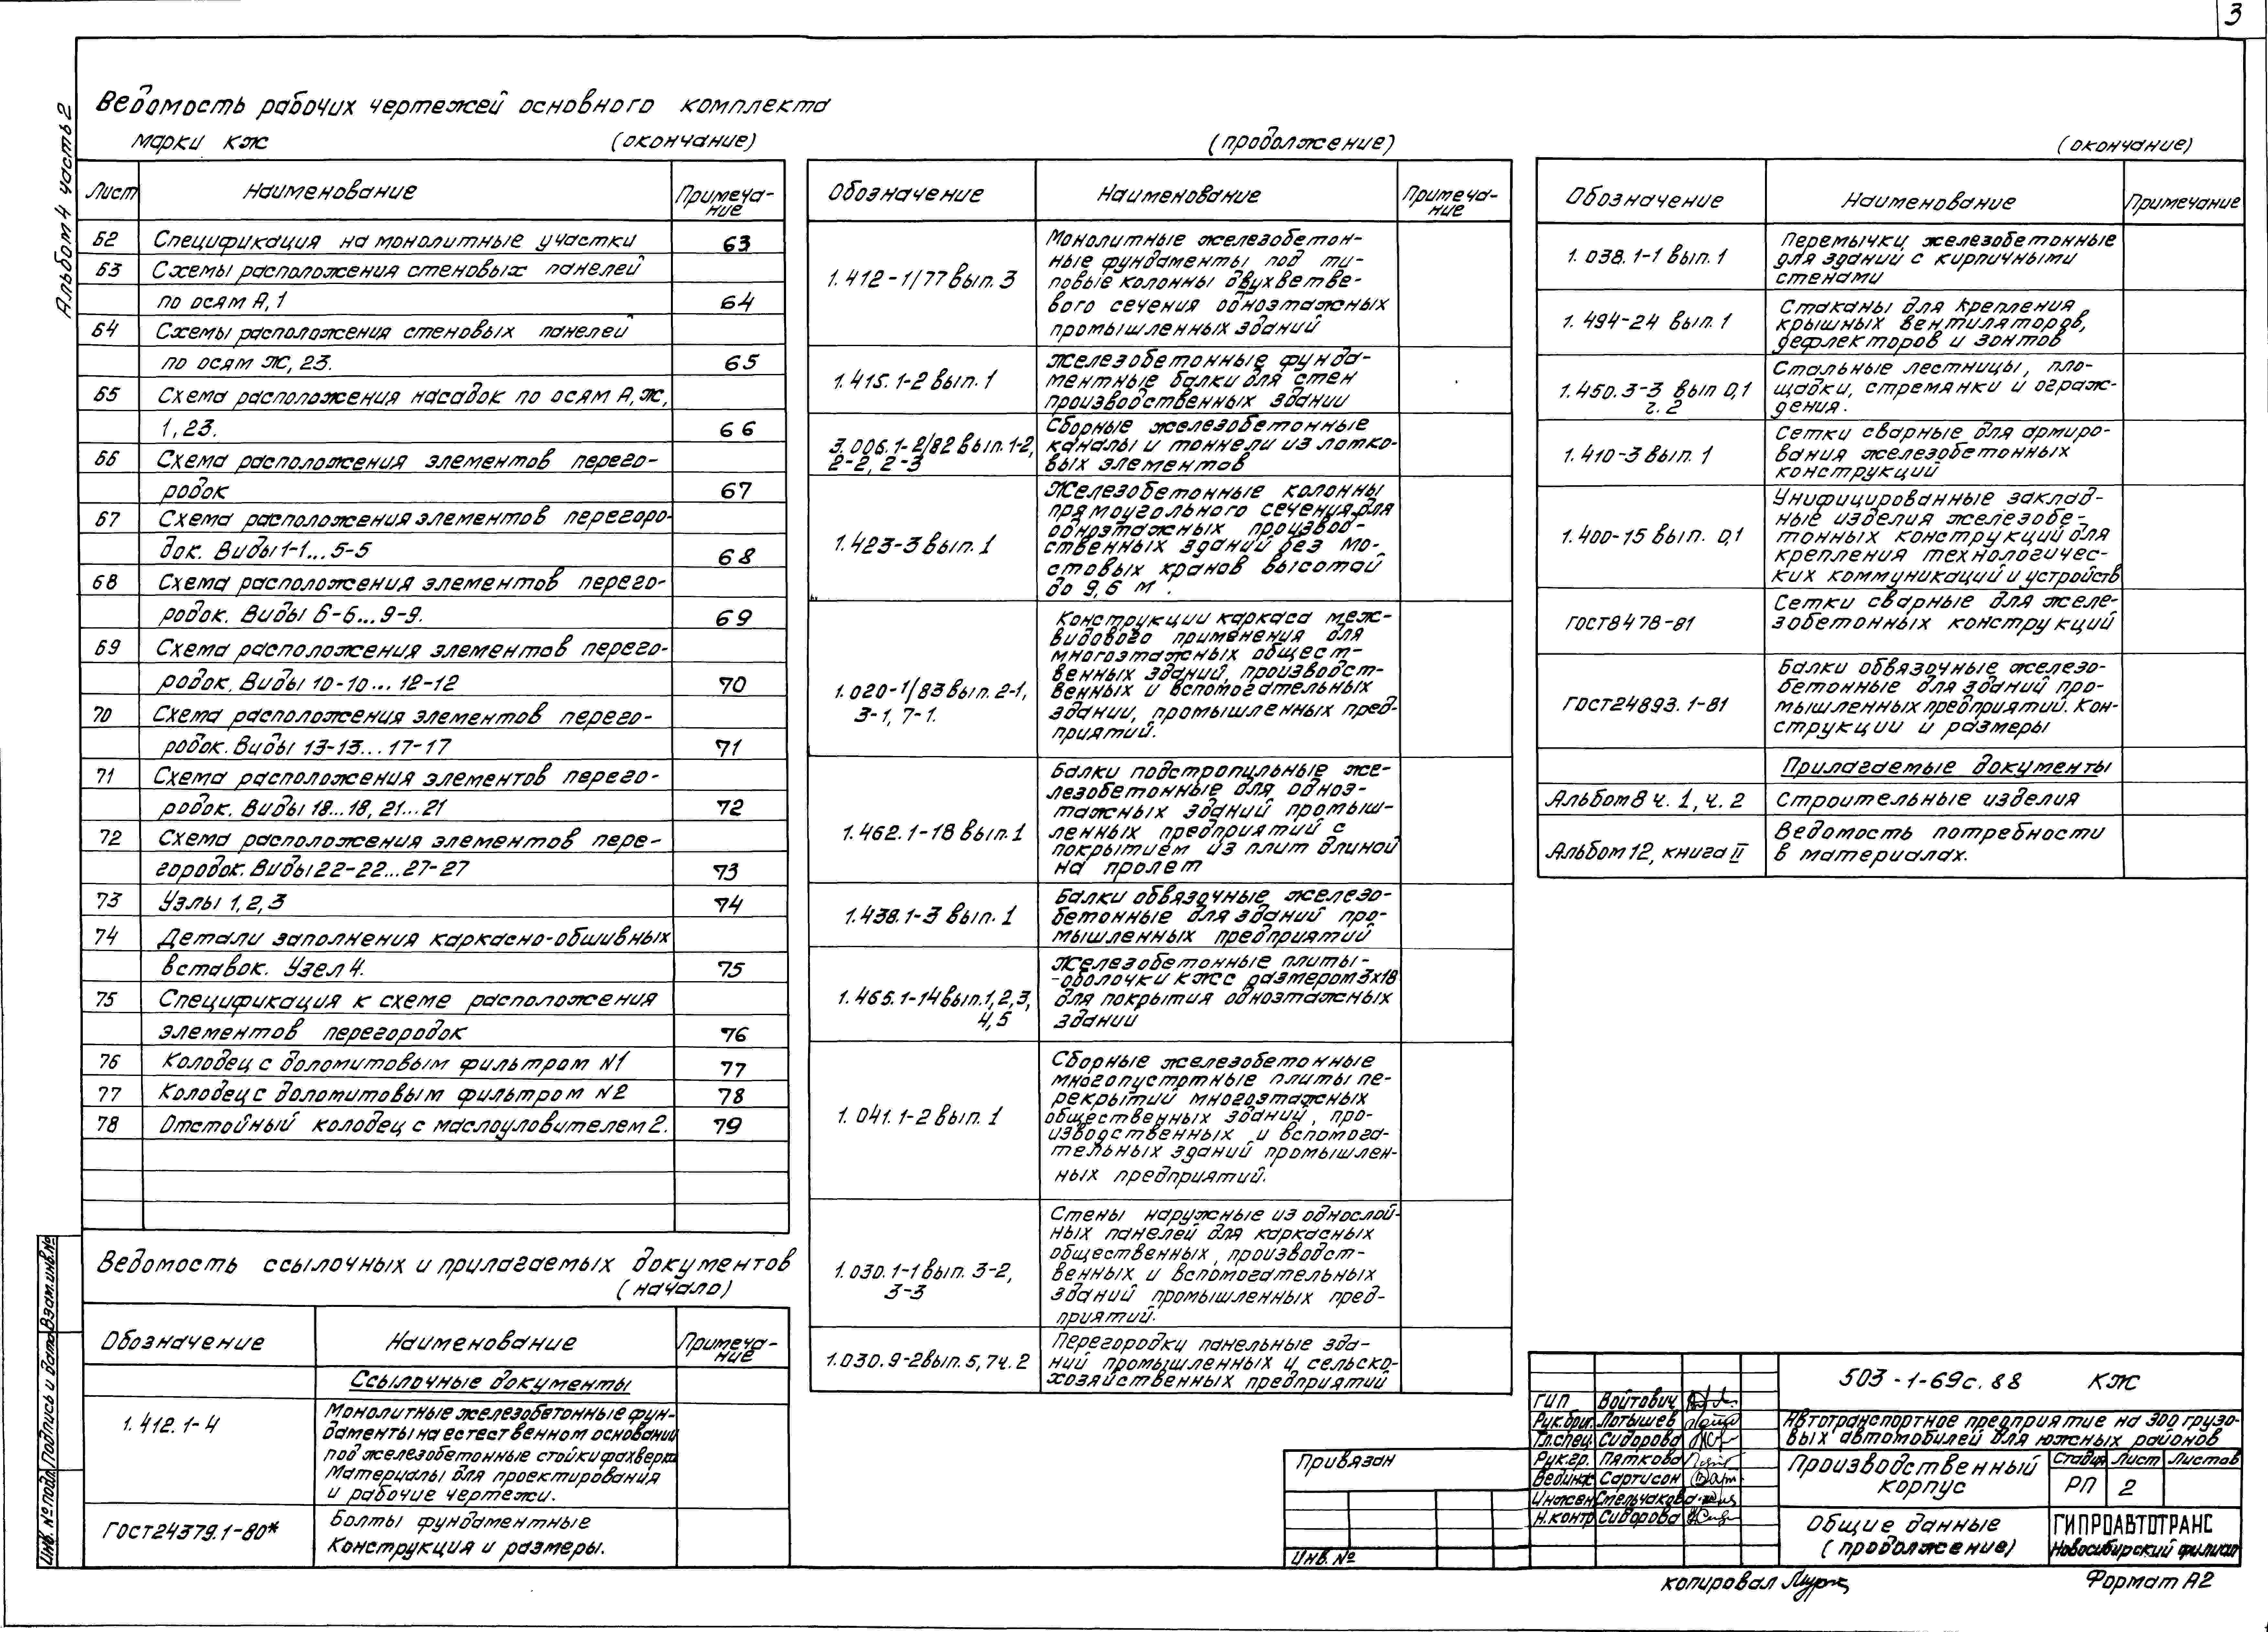 3
Альбом 4 часть 2
Ведомость рабочих чертежей основного комплекта
марки КЖ (окончание)
Лист Наименование Примеча-
ние
62 Спецификация на монолитные участки 63
63 Схемы расположения стеновых панелей
по осям А,1 64
64 Схемы расположения стеновых панелей
по осям Ж, 23. 65
65 Схема расположения насадок по осям А, Ж,
1, 23. 66
66 Схема расположения элементов перего-
родок 67
67 Схема расположения элементов перегоро-
док. Виды 1-1...5-5 68
68 Схема расположения элементов перего-
родок. Виды 6-6...9-9. 69
69 Схема расположения элементов перего-
родок. Виды 10-10...12-12 70
70 Схема расположения элементов перего-
родок. Виды 13-13...17-17 71
71 Схема расположения элементов перего-
родок. Виды 18...18, 21...21 72
72 Схема расположения элементов пере-
городок. Виды 22-22...27-27 73
73 Узлы 1, 2, 3 74
74 Детали заполнения каркасно-обшивных
вставок. Узел 4. 75
75 Спецификация к схеме расположения
элементов перегородок 76
76 Колодец с доломитовым фильтром N1 77
77 Колодец с доломитовым фильтром N2 78
78 Отстойный колодец с маслоуловителем 2. 79
Ведомость ссылочных и прилагаемых документов
(начало)
Обозначение Наименование Примеча-
ние
Ссылочные документы
1.412.1-4 Монолитные железобетонные фун-
даменты на естественном основании
под железобетонные стойки фахверка
Материалы для проектирования
и рабочие чертежи.
ГОСТ24379.1-80* Болты фундаментные
Конструкция и размеры.
(продолжение)
Обозначение Наименование Примеча-
ние
1.412-1/77 вып. 3 Монолитные железобетон-
ные фундаменты под ти-
повые колонны двухветве-
вого сечения одноэтажных
промышленных зданий
1.415.1-2 вып. 1 Железобетонные фунда-
ментные балки для стен
производственных зданий
3.006.1-2/82 вып. 1-2,
2-2, 2-3 Сборные железобетонные
каналы и тоннели из лотко-
вых элементов
1.423-3 вып. 1 Железобетонные колонны
прямоугольного сечения для
одноэтажных производ-
ственных зданий без мо-
стовых кранов высотой
до 9,6 м.
1.020-1/83 вып. 2-1,
3-1, 7-1. Конструкции каркаса меж-
видового применения для
многоэтажных общест-
венных зданий, производст-
венных и вспомогательных
зданий, промышленных пред-
приятий.
1.462.1-18 вып. 1 Балки подстропильные же-
лезобетонные для одноэ-
тажных зданий промыш-
ленных предприятий с
покрытием из плит длиной
на пролет
1.438.1-3 вып. 1 Балки обвязочные железо-
бетонные для зданий про-
мышленных предприятий
1.465.1-14 вып. 1, 2, 3,
4, 5 Железобетонные плиты-
-оболочки КЖС размером 3х18
для покрытия одноэтажных
зданий
1.041.1-2 вып. 1 Сборные железобетонные
многопустотные плиты пе-
рекрытий многоэтажных
общественных зданий, про-
изводственных и вспомога-
тельных зданий промышлен-
ных предприятий.
1.030.1-1 вып. 3-2,
3-3 Стены наружные из однослой-
ных панелей для каркасных
общественных, производст-
венных и вспомогательных
зданий промышленных пред-
приятий.
1.030.9-2 вып. 5, 7 ч. 2 Перегородки панельные зда-
ний промышленных и сельско-
хозяйственных предприятий
(окончание)
Обозначение Наименование Примечание
1.038.1-1 вып. 1 Перемычки железобетонные
для зданий с кирпичными
стенами
1.494-24 вып. 1 Стаканы для крепления
крышных вентиляторов,
дефлекторов и зонтов
1.450.3-3 вып 0,1
ч. 2 Стальные лестницы, пло-
щадки, стремянки и ограж-
дения.
1.410-3 вып. 1 Сетки сварные для армиро-
вания железобетонных
конструкций
1.400-15 вып. 0,1 Унифицированные заклад-
ные изделия железобе-
тонных конструкций для
крепления технологичес-
ких коммуникаций и устройств
ГОСТ8478-81 Сетки сварные для желе-
зобетонных конструкций
ГОСТ24893.1-81 Балки обвязочные железо-
бетонные для зданий про-
мышленных предприятий. Кон-
струкции и размеры
Прилагаемые документы
Альбом 8 ч. 1, ч. 2 Строительные изделия
Альбом 12, книга II Ведомость потребности
в материалах.
Инв. № подл. Подпись и дата Взам.инв.№
Привязан
Инв. №
ГИП Войтович
Рук.бриг. Латышев
Гл.спец. Сидорова
Рук.гр. Пяткова
Вед.инж Сартисон
Инжен Стельчакова
Н.контр Сидорова
503-1-69с.88 КЖ
Автотранспортное предприятие на 300 грузо-
вых автомобилей для южных районов
Производственный
корпус
Стадия Лист Листов
РП 2
Общие данные
(продолжение)
ГИПРОАВТОТРАНС
Новосибирский филиал
копировал
Формат А2